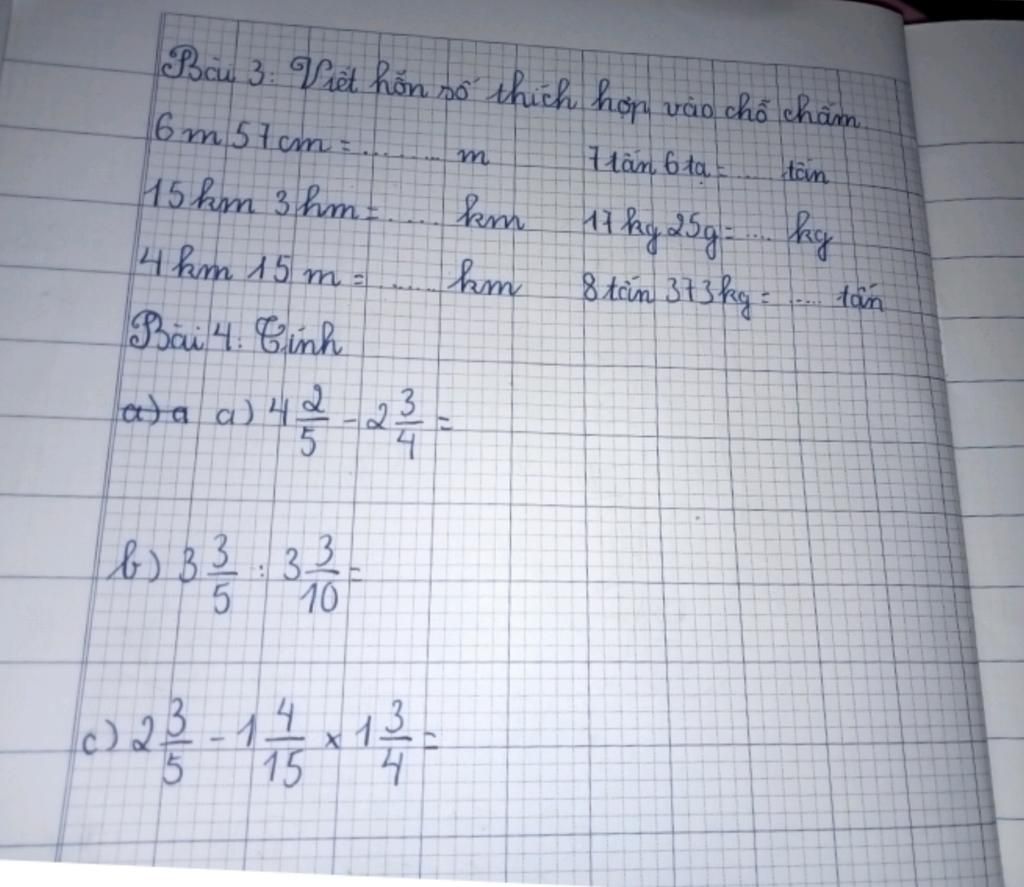 Bài 3: Viết hỗn số thích hợp vào chỗ chấm
6m 57cm = ........ m 7 tấn 6 tạ = .... tấn
15km 3hm = ..... km 17kg 25g = .... kg
4km 15m = ..... km 8 tấn 373kg = ..... tấn
Bài 4: Tính
a) a a) 4 2/5 - 2 3/4 =
b) 3 3/5 : 3 3/10 =
c) 2 3/5 - 1 4/15 × 1 3/4 =